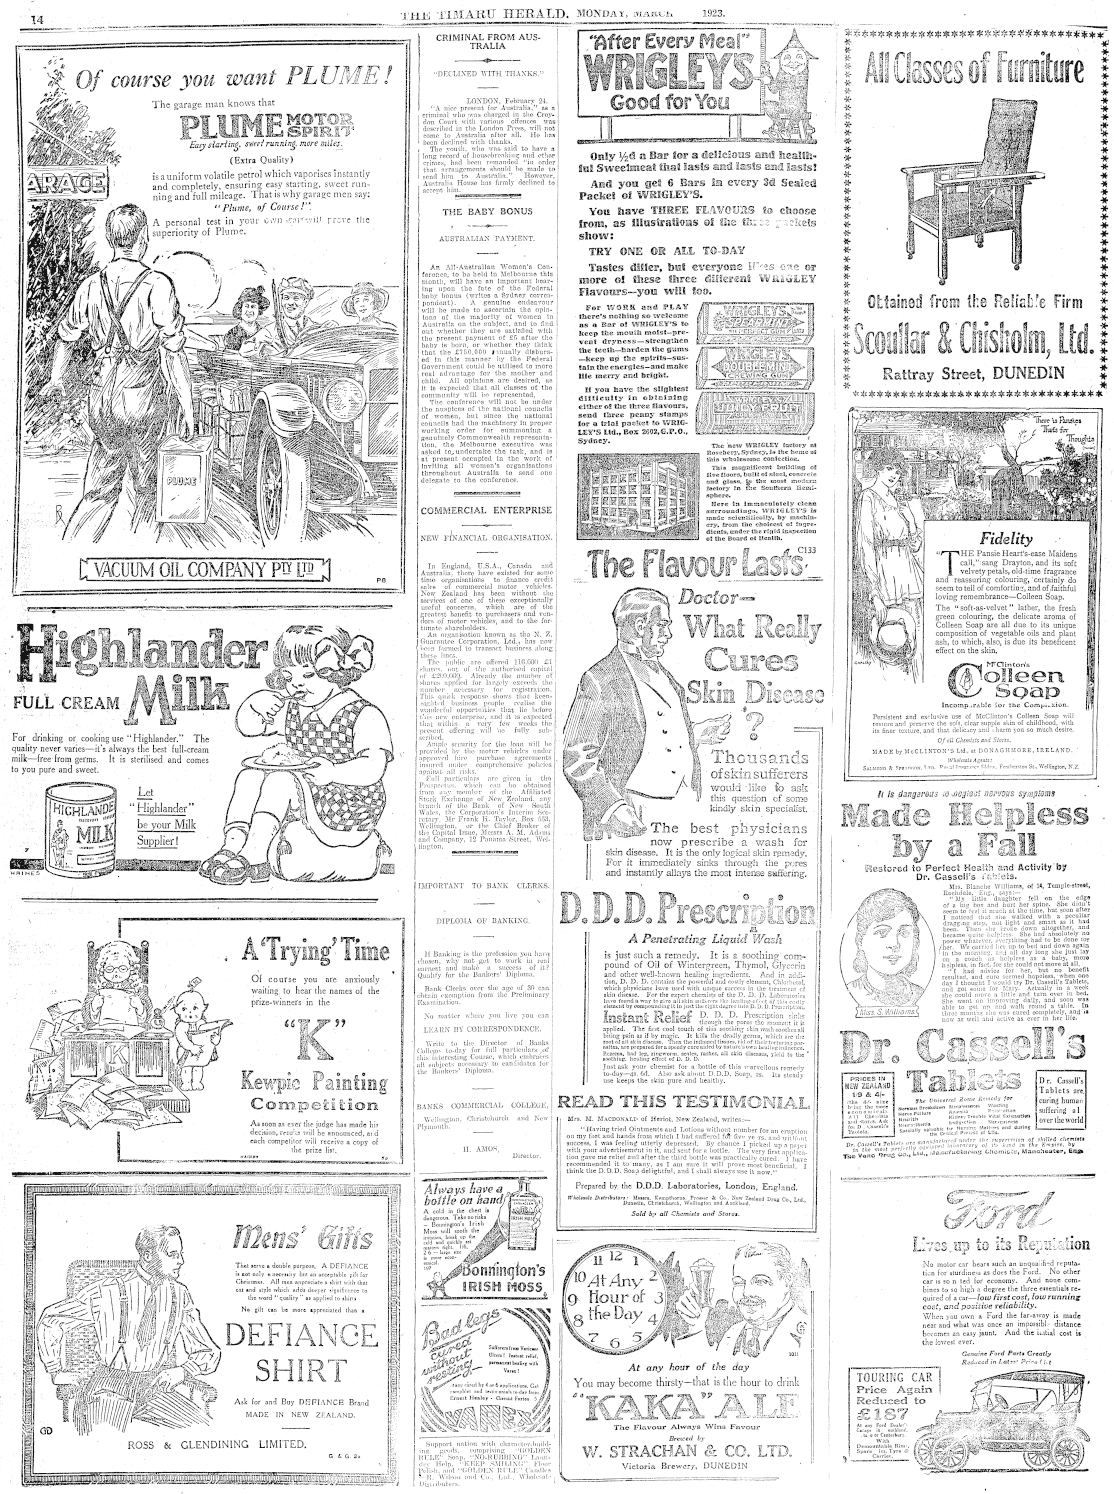 14
THE TIMARU HERALD, MONDAY, MARCH 1923.
Of course you want PLUME!
The garage man knows that
PLUME MOTOR SPIRIT
Easy starting, sweet running, more miles.
(Extra Quality)
is a uniform volatile petrol which vaporises instantly
and completely, ensuring easy starting, sweet run-
ning and full mileage. That is why garage men say:
"Plume, of Course!".
A personal test in your own car will prove the
superiority of Plume.
ARAGE
PLUME
VACUUM OIL COMPANY PTY LTD
Highlander
FULL CREAM Milk
For drinking or cooking use "Highlander." The
quality never varies—it's always the best full-cream
milk—free from germs. It is sterilised and comes
to you pure and sweet.
Let
"Highlander"
be your Milk
Supplier!
HIGHLANDER
MILK
HAINES
A 'Trying' Time
Of course you are anxiously
waiting to hear the names of the
prize-winners in the
"K"
Kewpie Painting
Competition
As soon as ever the judge has made his
decision, results will be announced, and
each competitor will receive a copy of
the prize list.
K
Mens' Gifts
That serve a double purpose, A DEFIANCE
is not only a necessity but an acceptable gift for
Christmas. All men appreciate a shirt with that
cut and style which adds deeper significance to
the word "quality" as applied to shirts.
No gift can be more appreciated than a
DEFIANCE
SHIRT
Ask for and Buy DEFIANCE Brand
MADE IN NEW ZEALAND.
ROSS & GLENDINING LIMITED.
CRIMINAL FROM AUS-
TRALIA
"DECLINED WITH THANKS."
LONDON, February 24.
"A nice present for Australia," as a
criminal who was charged in the Croy-
don Court with various offences was
described in the London Press, will not
come to Australia after all. He has
been declined with thanks.
The youth, who was said to have a
long record of housebreaking and other
crimes, had been remanded "in order
that arrangements should be made to
send him to Australia." However,
Australia House has firmly declined to
accept him.
THE BABY BONUS
AUSTRALIAN PAYMENT.
An All-Australian Women's Con-
ference, to be held in Melbourne this
month, will have an important bear-
ing upon the fate of the Federal
baby bonus (writes a Sydney corres-
pondent). A genuine endeavour
will be made to ascertain the opin-
ions of the majority of women in
Australia on the subject, and to find
out whether they are satisfied with
the present payment of £5 after the
baby is born, or whether they think
that the £750,000 annually disburs-
ed in this manner by the Federal
Government could be utilised to more
real advantage for the mother and
child. All opinions are desired, as
it is expected that all classes of the
community will be represented.
The conference will not be under
the auspices of the national councils
of women, but since the national
councils had the machinery in proper
working order for summoning a
genuinely Commonwealth representa-
tion, the Melbourne executive was
asked to undertake the task, and is
at present occupied in the work of
inviting all women's organisations
throughout Australia to send one
delegate to the conference.
COMMERCIAL ENTERPRISE
NEW FINANCIAL ORGANISATION.
In England, U.S.A., Canada and
Australia, there have existed for some
time organisations to finance credit
sales of commercial motor vehicles.
New Zealand has been without the
services of one of these exceptionally
useful concerns, which are of the
greatest benefit to purchasers and ven-
dors of motor vehicles, and to the for-
tunate shareholders.
An organisation known as the N. Z.
Guarantee Corporation, Ltd., has now
been formed to transact business along
these lines.
The public are offered 110,000 £1
shares, out of the authorised capital
of £200,000. Already the number of
shares applied for largely exceeds the
number necessary for registration.
This quick response shows that keen-
sighted business people realise the
wonderful opportunities that lie before
this new enterprise, and it is expected
that within a very few weeks the
present offering will be fully sub-
scribed.
Ample security for the loan will be
provided by the motor vehicles under
approved hire purchase agreements
insured under comprehensive policies
against all risks.
Full particulars are given in the
Prospectus, which can be obtained
from any member of the Affiliated
Stock Exchange of New Zealand, any
branch of the Bank of New South
Wales, the Corporation's Interim Sec-
retary, Mr Frank H. Taylor, Box 553,
Wellington, or the Chief Broker of
the Capital Issue, Messrs A. M. Adams
and Company, 12 Panama Street, Wel-
lington.
IMPORTANT TO BANK CLERKS.
DIPLOMA OF BANKING.
If Banking is the profession you have
chosen, why not get to work in real
earnest and make a success of it?
Qualify for the Bankers' Diploma.
Bank Clerks over the age of 30 can
obtain exemption from the Preliminary
Examination.
No matter where you live you can
LEARN BY CORRESPONDENCE.
Write to the Director of Banks
College to-day for full particulars of
this interesting Course, which embraces
all subjects necessary to candidates for
the Bankers' Diploma.
BANKS COMMERCIAL COLLEGE,
Wellington, Christchurch and New
Plymouth.
H. AMOS,
Director.
Always have a
bottle on hand
A cold in the chest is
dangerous. Take no risks
— Bonnington's Irish
Moss will sooth the
Bonnington's
IRISH MOSS
Bad legs
cured
without
resting!
Sufferers from Varicose
Ulcers! Instant relief,
permanent healing with
Varex
VAREX
Support nation with character-build-
ing goods, comprising "GOLDEN
RULE" Soap, "NO-RUBBING" Laun-
dry Help, "KEEP SMILING" Floor
Polish, and "GOLDEN RULE" Candles
R. Wilson and Co., Ltd., Wholesale
Distributors.
"After Every Meal"
WRIGLEY'S
Good for You
Only ½d a Bar for a delicious and health-
ful Sweetmeat that lasts and lasts and lasts!
And you get 6 Bars in every 3d Sealed
Packet of WRIGLEY'S.
You have THREE FLAVOURS to choose
from, as illustrations of the three packets
show:
TRY ONE OR ALL TO-DAY
Tastes differ, but everyone likes one or
more of these three different WRIGLEY
Flavours—you will too.
For WORK and PLAY
there's nothing so welcome
as a Bar of WRIGLEY'S to
keep the mouth moist—pre-
vent dryness—strengthen
the teeth—harden the gums
—keep up the spirits—sus-
tain the energies—and make
life merry and bright.
If you have the slightest
difficulty in obtaining
either of the three flavours,
send three penny stamps
for a trial packet to WRIG-
LEY'S Ltd., Box 2602, G.P.O.,
Sydney.
WRIGLEYS
WRIGLEY'S
DOUBLEMINT
CHEWING GUM
JUICY FRUIT
The new WRIGLEY factory at
Rosebery, Sydney, is the home of
this wholesome confection.
This magnificent building of
five floors, built of steel, concrete
and glass, is the most modern
factory in the Southern Hemi-
sphere.
Here in immaculately clean
surroundings, WRIGLEY'S is
made scientifically, by machin-
ery, from the choicest of ingre-
dients, under the rigid inspection
of the Board of Health.
C133
The Flavour Lasts
Doctor—
What Really
Cures
Skin Disease
?
Thousands
of skin sufferers
would like to ask
this question of some
kindly skin specialist.
The best physicians
now prescribe a wash for
skin disease. It is the only logical skin remedy.
For it immediately sinks through the pores
and instantly allays the most intense suffering.
D.D.D. Prescription
A Penetrating Liquid Wash
is just such a remedy. It is a soothing com-
pound of Oil of Wintergreen, Thymol, Glycerin
and other well-known healing ingredients. And in addi-
tion, D. D. D. contains the powerful and costly element, Chlorbutol,
which physicians have used with unique success in the treatment of
skin disease. For the expert chemists of the D. D. D. Laboratories
Instant Relief D. D. D. Prescription sinks
through the pores the moment it is
applied. The first cool touch of this soothing skin wash soothes all
biting pain as if by magic.
Just ask your chemist for a bottle of this marvellous remedy
to-day—4s. 6d. Also ask about D.D.D. Soap, 2s. Its steady
use keeps the skin pure and healthy.
READ THIS TESTIMONIAL
Mrs. M. MACDONALD of Heriot, New Zealand, writes:—
"Having tried Ointments and Lotions without number for an eruption
on my foot and hands from which I had suffered for five years, and without
success, I was feeling utterly depressed. By chance I picked up a paper
with your advertisement in it, and sent for a bottle. The very first applica-
tion gave me relief and after the third bottle was practically cured. I have
recommended it to many, as I am sure it will prove most beneficial. I
think the D.O.D. Soap delightful, and I shall always use it now."
Prepared by the D.D.D. Laboratories, London, England.
Wholesale Distributors: Messrs. Kempthorne, Prosser & Co. New Zealand Drug Co., Ltd.,
Dunedin, Christchurch, Wellington and Auckland.
Sold by all Chemists and Stores.
12 1 2 3 4 5 6 7 8 9 10 11
At Any
Hour of
the Day
At any hour of the day
You may become thirsty—that is the hour to drink
"KAKA" ALE
The Flavour Always Wins Favour
Brewed by
W. STRACHAN & CO. LTD.
Victoria Brewery, DUNEDIN
All Classes of Furniture
Obtained from the Reliable Firm
Scoullar & Chisholm, Ltd.
Rattray Street, DUNEDIN
There is Pansies
That's for
Thoughts
Fidelity
"THE Pansie Heart's-ease Maidens
call," sang Drayton, and its soft
velvety petals, old-time fragrance
and reassuring colouring, certainly do
seem to tell of comforting, and of faithful
loving remembrance—Colleen Soap.
The "soft-as-velvet" lather, the fresh
green colouring, the delicate aroma of
Colleen Soap are all due to its unique
composition of vegetable oils and plant
ash, to which, also, is due its beneficent
effect on the skin.
McClinton's
Colleen
Soap
Incomparable for the Complexion.
Persistent and exclusive use of McClinton's Colleen Soap will
restore and preserve the soft, clear supple skin of childhood, with
its finer texture, and that delicacy and charm you so much desire.
Of all Chemists and Stores.
MADE by McCLINTON'S Ltd., at DONAGHMORE, IRELAND.
Wholesale Agents:
SALMOND & SPRAGGON, Ltd., Royal Insurance Bldgs., Featherston St., Wellington, N.Z.
It is dangerous to neglect nervous symptoms
Made Helpless
by a Fall
Restored to Perfect Health and Activity by
Dr. Cassell's Tablets.
Mrs. Blanche Williams, of 14, Temple-street,
Rochdale, Eng., says:—
"My little daughter fell on the edge
of a big box and hurt her spine. She didn't
seem to feel it much at the time, but soon after
I noticed that she walked with a peculiar
dragging step, not light and smart as it had
been. Then she broke down altogether, and
became quite helpless. She had absolutely no
power whatever, everything had to be done for
her. We carried her up to bed and down again
in the morning, and all day long she just lay
on a couch as helpless as a baby, more
helpless, in fact, for she could not move at all.
I had advice for her, but no benefit
resulted, and cure seemed hopeless, when one
day I thought I would try Dr. Cassell's Tablets,
and got some for Mary. Actually in a week
she could move a little and turn over in bed.
She went on improving daily, and soon was
able to get up and walk round a table. In
three months she was cured completely, and is
now as well and active as ever in her life.
Miss S. Williams
Dr. Cassell's
Tablets
PRICES IN
NEW ZEALAND
1/9 & 4/-
The Universal Home Remedy for
Dr. Cassell's
Tablets are
curing human
suffering all
over the world
Dr. Cassell's Tablets are manufactured under the supervision of skilled chemists
in the most perfectly equipped laboratory of its kind in the Empire, by
The Veno Drug Co., Ltd., Manufacturing Chemists, Manchester, Eng.
Ford
Lives up to its Reputation
No motor car hears such an unqualified reputa-
tion for sturdiness as does the Ford. No other
car is so noted for economy. And none com-
bines to so high a degree the three essentials re-
quired of a car—low first cost, low running
cost, and positive reliability.
When you own a Ford the far-away is made
near and what was once an impossible distance
becomes an easy jaunt. And the initial cost is
the lowest ever.
Genuine Ford Parts Greatly
Reduced in Latest Price List
TOURING CAR
Price Again
Reduced to
£187